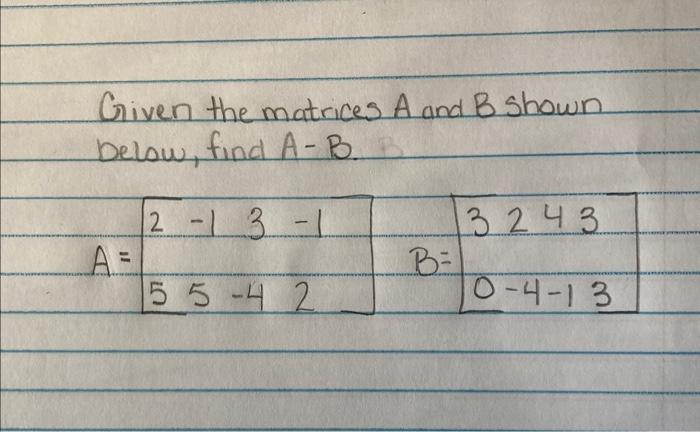 Given the matrices A and B shown
below, find A - B.
A = [2 -1 3 -1
5 5 -4 2]
B = [3 2 4 3
0 -4 -1 3]